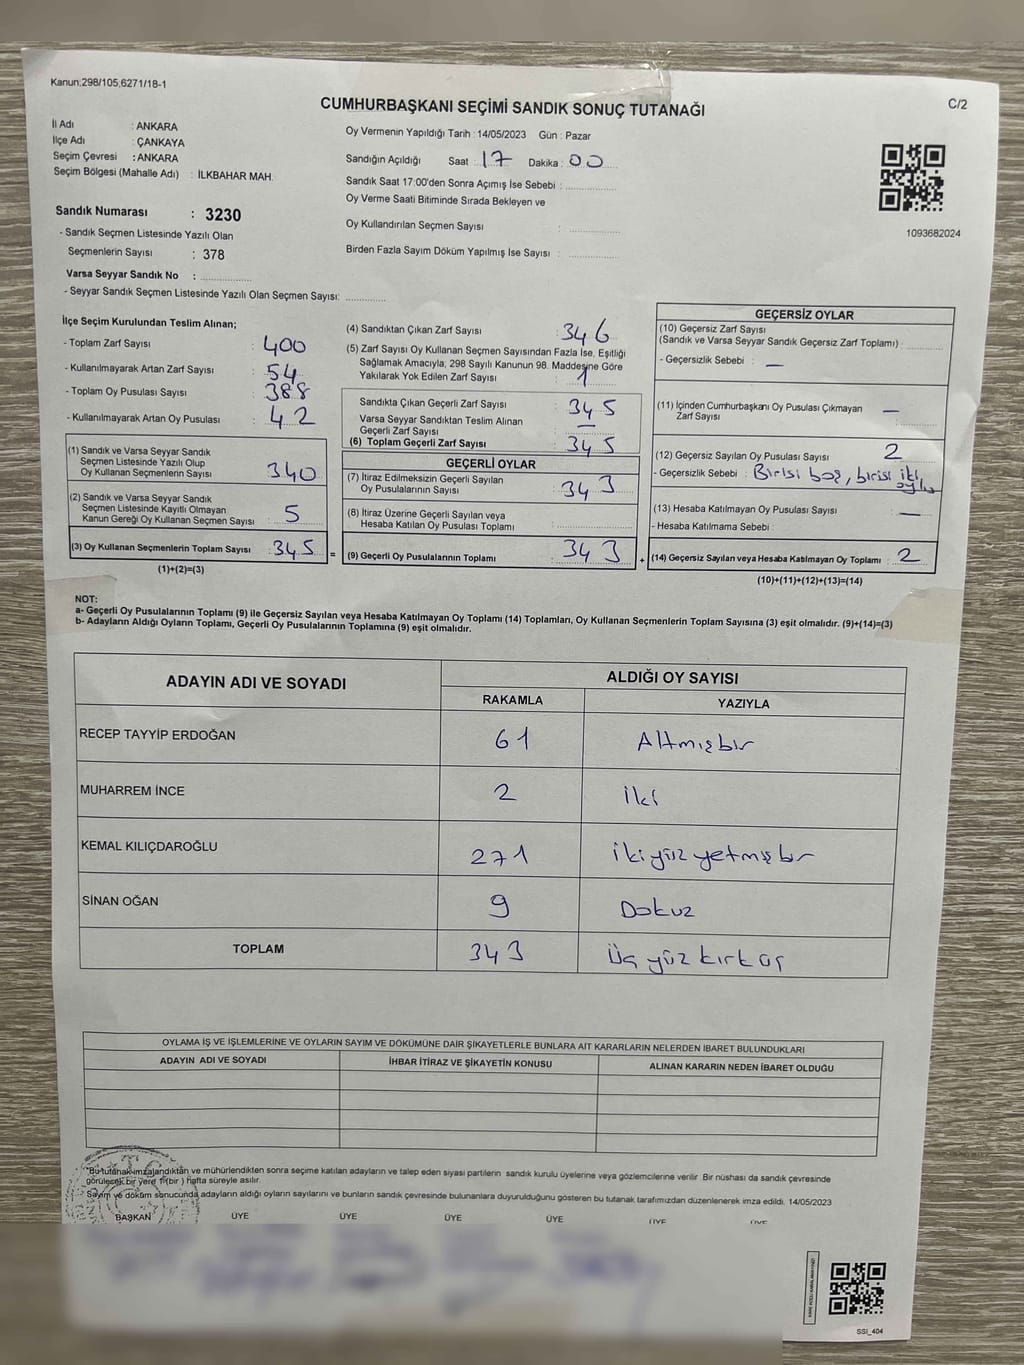 Kanun;298/105,6271/18-1
CUMHURBAŞKANI SEÇİMİ SANDIK SONUÇ TUTANAĞI
C/2
İl Adı : ANKARA
İlçe Adı : ÇANKAYA
Seçim Çevresi : ANKARA
Seçim Bölgesi (Mahalle Adı) : İLKBAHAR MAH.
Sandık Numarası : 3230
- Sandık Seçmen Listesinde Yazılı Olan
Seçmenlerin Sayısı : 378
Varsa Seyyar Sandık No :
- Seyyar Sandık Seçmen Listesinde Yazılı Olan Seçmen Sayısı:
Oy Vermenin Yapıldığı Tarih : 14/05/2023 Gün : Pazar
Sandığın Açıldığı Saat : 17 Dakika : 00
Sandık Saat 17:00'den Sonra Açımış İse Sebebi :
Oy Verme Saati Bitiminde Sırada Bekleyen ve
Oy Kullandırılan Seçmen Sayısı :
Birden Fazla Sayım Döküm Yapılmış İse Sayısı :
1093682024
İlçe Seçim Kurulundan Teslim Alınan;
- Toplam Zarf Sayısı : 400
- Kullanılmayarak Artan Zarf Sayısı : 54
- Toplam Oy Pusulası Sayısı : 388
- Kullanılmayarak Artan Oy Pusulası : 42
(1) Sandık ve Varsa Seyyar Sandık
Seçmen Listesinde Yazılı Olup
Oy Kullanan Seçmenlerin Sayısı : 340
(2) Sandık ve Varsa Seyyar Sandık
Seçmen Listesinde Kayıtlı Olmayan
Kanun Gereği Oy Kullanan Seçmen Sayısı : 5
(3) Oy Kullanan Seçmenlerin Toplam Sayısı : 345 =
(1)+(2)=(3)
(4) Sandıktan Çıkan Zarf Sayısı : 346
(5) Zarf Sayısı Oy Kullanan Seçmen Sayısından Fazla İse, Eşitliği
Sağlamak Amacıyla; 298 Sayılı Kanunun 98. Maddesine Göre
Yakılarak Yok Edilen Zarf Sayısı : 1
Sandıkta Çıkan Geçerli Zarf Sayısı : 345
Varsa Seyyar Sandıktan Teslim Alınan
Geçerli Zarf Sayısı : —
(6) Toplam Geçerli Zarf Sayısı : 345
GEÇERLİ OYLAR
(7) İtiraz Edilmeksizin Geçerli Sayılan
Oy Pusulalarının Sayısı : 343
(8) İtiraz Üzerine Geçerli Sayılan veya
Hesaba Katılan Oy Pusulası Toplamı :
(9) Geçerli Oy Pusulalarının Toplamı : 343 +
GEÇERSİZ OYLAR
(10) Geçersiz Zarf Sayısı
(Sandık ve Varsa Seyyar Sandık Geçersiz Zarf Toplamı) :
- Geçersizlik Sebebi : —
(11) İçinden Cumhurbaşkanı Oy Pusulası Çıkmayan
Zarf Sayısı : —
(12) Geçersiz Sayılan Oy Pusulası Sayısı : 2
- Geçersizlik Sebebi : Birisi boş, birisi iki
oylu
(13) Hesaba Katılmayan Oy Pusulası Sayısı : —
- Hesaba Katılmama Sebebi :
(14) Geçersiz Sayılan veya Hesaba Katılmayan Oy Toplamı : 2
(10)+(11)+(12)+(13)=(14)
NOT:
a- Geçerli Oy Pusulalarının Toplamı (9) ile Geçersiz Sayılan veya Hesaba Katılmayan Oy Toplamı (14) Toplamları, Oy Kullanan Seçmenlerin Toplam Sayısına (3) eşit olmalıdır. (9)+(14)=(3)
b- Adayların Aldığı Oyların Toplamı, Geçerli Oy Pusulalarının Toplamına (9) eşit olmalıdır.
ADAYIN ADI VE SOYADI ALDIĞI OY SAYISI
RAKAMLA YAZIYLA
RECEP TAYYİP ERDOĞAN 61 Altmışbir
MUHARREM İNCE 2 İki
KEMAL KILIÇDAROĞLU 271 İkiyüz yetmişbir
SİNAN OĞAN 9 Dokuz
TOPLAM 343 Üç yüz kırk üç
OYLAMA İŞ VE İŞLEMLERİNE VE OYLARIN SAYIM VE DÖKÜMÜNE DAİR ŞİKAYETLERLE BUNLARA AİT KARARLARIN NELERDEN İBARET BULUNDUKLARI
ADAYIN ADI VE SOYADI İHBAR İTİRAZ VE ŞİKAYETİN KONUSU ALINAN KARARIN NEDEN İBARET OLDUĞU
*Bu tutanak imzalandıktan ve mühürlendikten sonra seçime katılan adayların ve talep eden siyasi partilerin sandık kurulu üyelerine veya gözlemcilerine verilir. Bir nüshası da sandık çevresinde
görülecek bir yere 1 (bir) hafta süreyle asılır.
* Sayım ve döküm sonucunda adayların aldığı oyların sayılarını ve bunların sandık çevresinde bulunanlara duyurulduğunu gösteren bu tutanak tarafımızdan düzenlenerek imza edildi. 14/05/2023
BAŞKAN ÜYE ÜYE ÜYE ÜYE ÜYE ÜYE
SSI_404